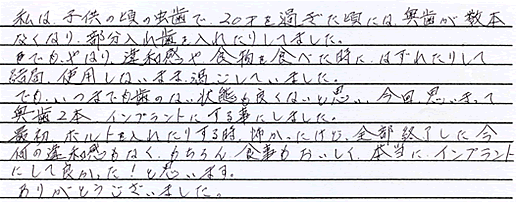 私は、子供の頃の虫歯で、20才を過ぎた頃には、奥歯が数本
なくなり、部分入れ歯を入れたりしてました。
でも、やはり、違和感や、食物を食べた時に、はずれたりして
結局、使用しないまま、過ごしていました。
でも、いつまでも歯のない状態も良くないと思い、今回、思いきって
奥歯2本、インプラントにする事にしました。
最初、ボルトを入れたりする時、怖かったけど、全部終了した今
何の違和感もなく、もちろん、食事もおいしく、本当に、インプラント
にして良かった!と思います。
ありがとうございました。